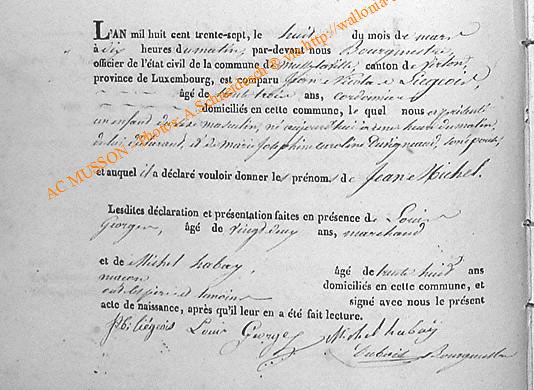 L'AN mil huit cent trente-sept, le huit du mois de mars
à dix heures du matin, par-devant nous Bourgmestre
officier de l'état civil de la commune de canton de
province de Luxembourg, est comparu Jean Liégeois,
âgé de trente trois ans, cordonnier
domiciliés en cette commune, le quel nous a présenté
un enfant du sexe masculin, né aujourd'hui à heure du matin,
de lui déclarant, et de Marie Josephine Caroline son épouse,
et auquel il a déclaré vouloir donner les prénoms de Jean Michel.
Lesdites déclaration et présentation faites en présence de Louis
Georges, âgé de ans, marchand
et de Michel habay, âgé de trente huit ans
maçon domiciliés en cette commune, et
ont les père et témoins signé avec nous le présent
acte de naissance, après qu'il leur en a été fait lecture.
liégeois Louis George Michel habaÿ
Bourgmestre
AC MUSSON Photo : A.Schreidrech ® via http://wallonia-